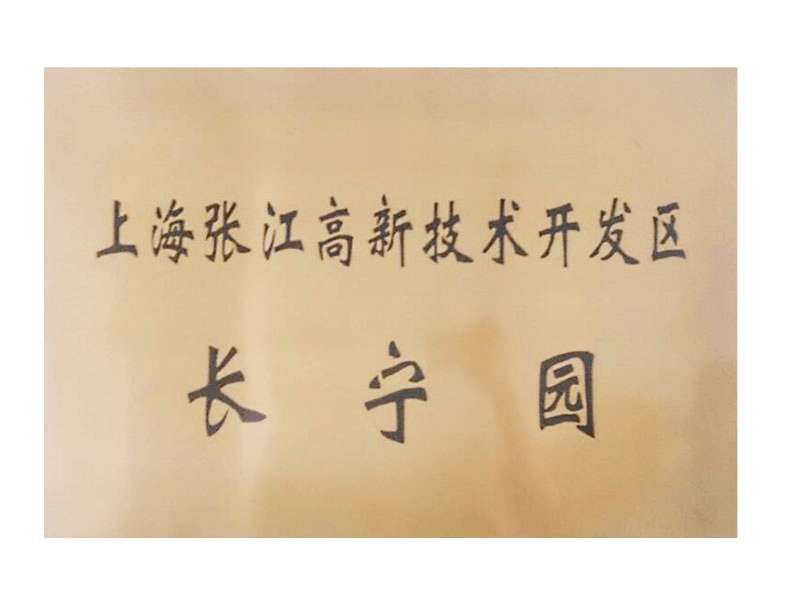 上海张江高新技术开发区
长宁园